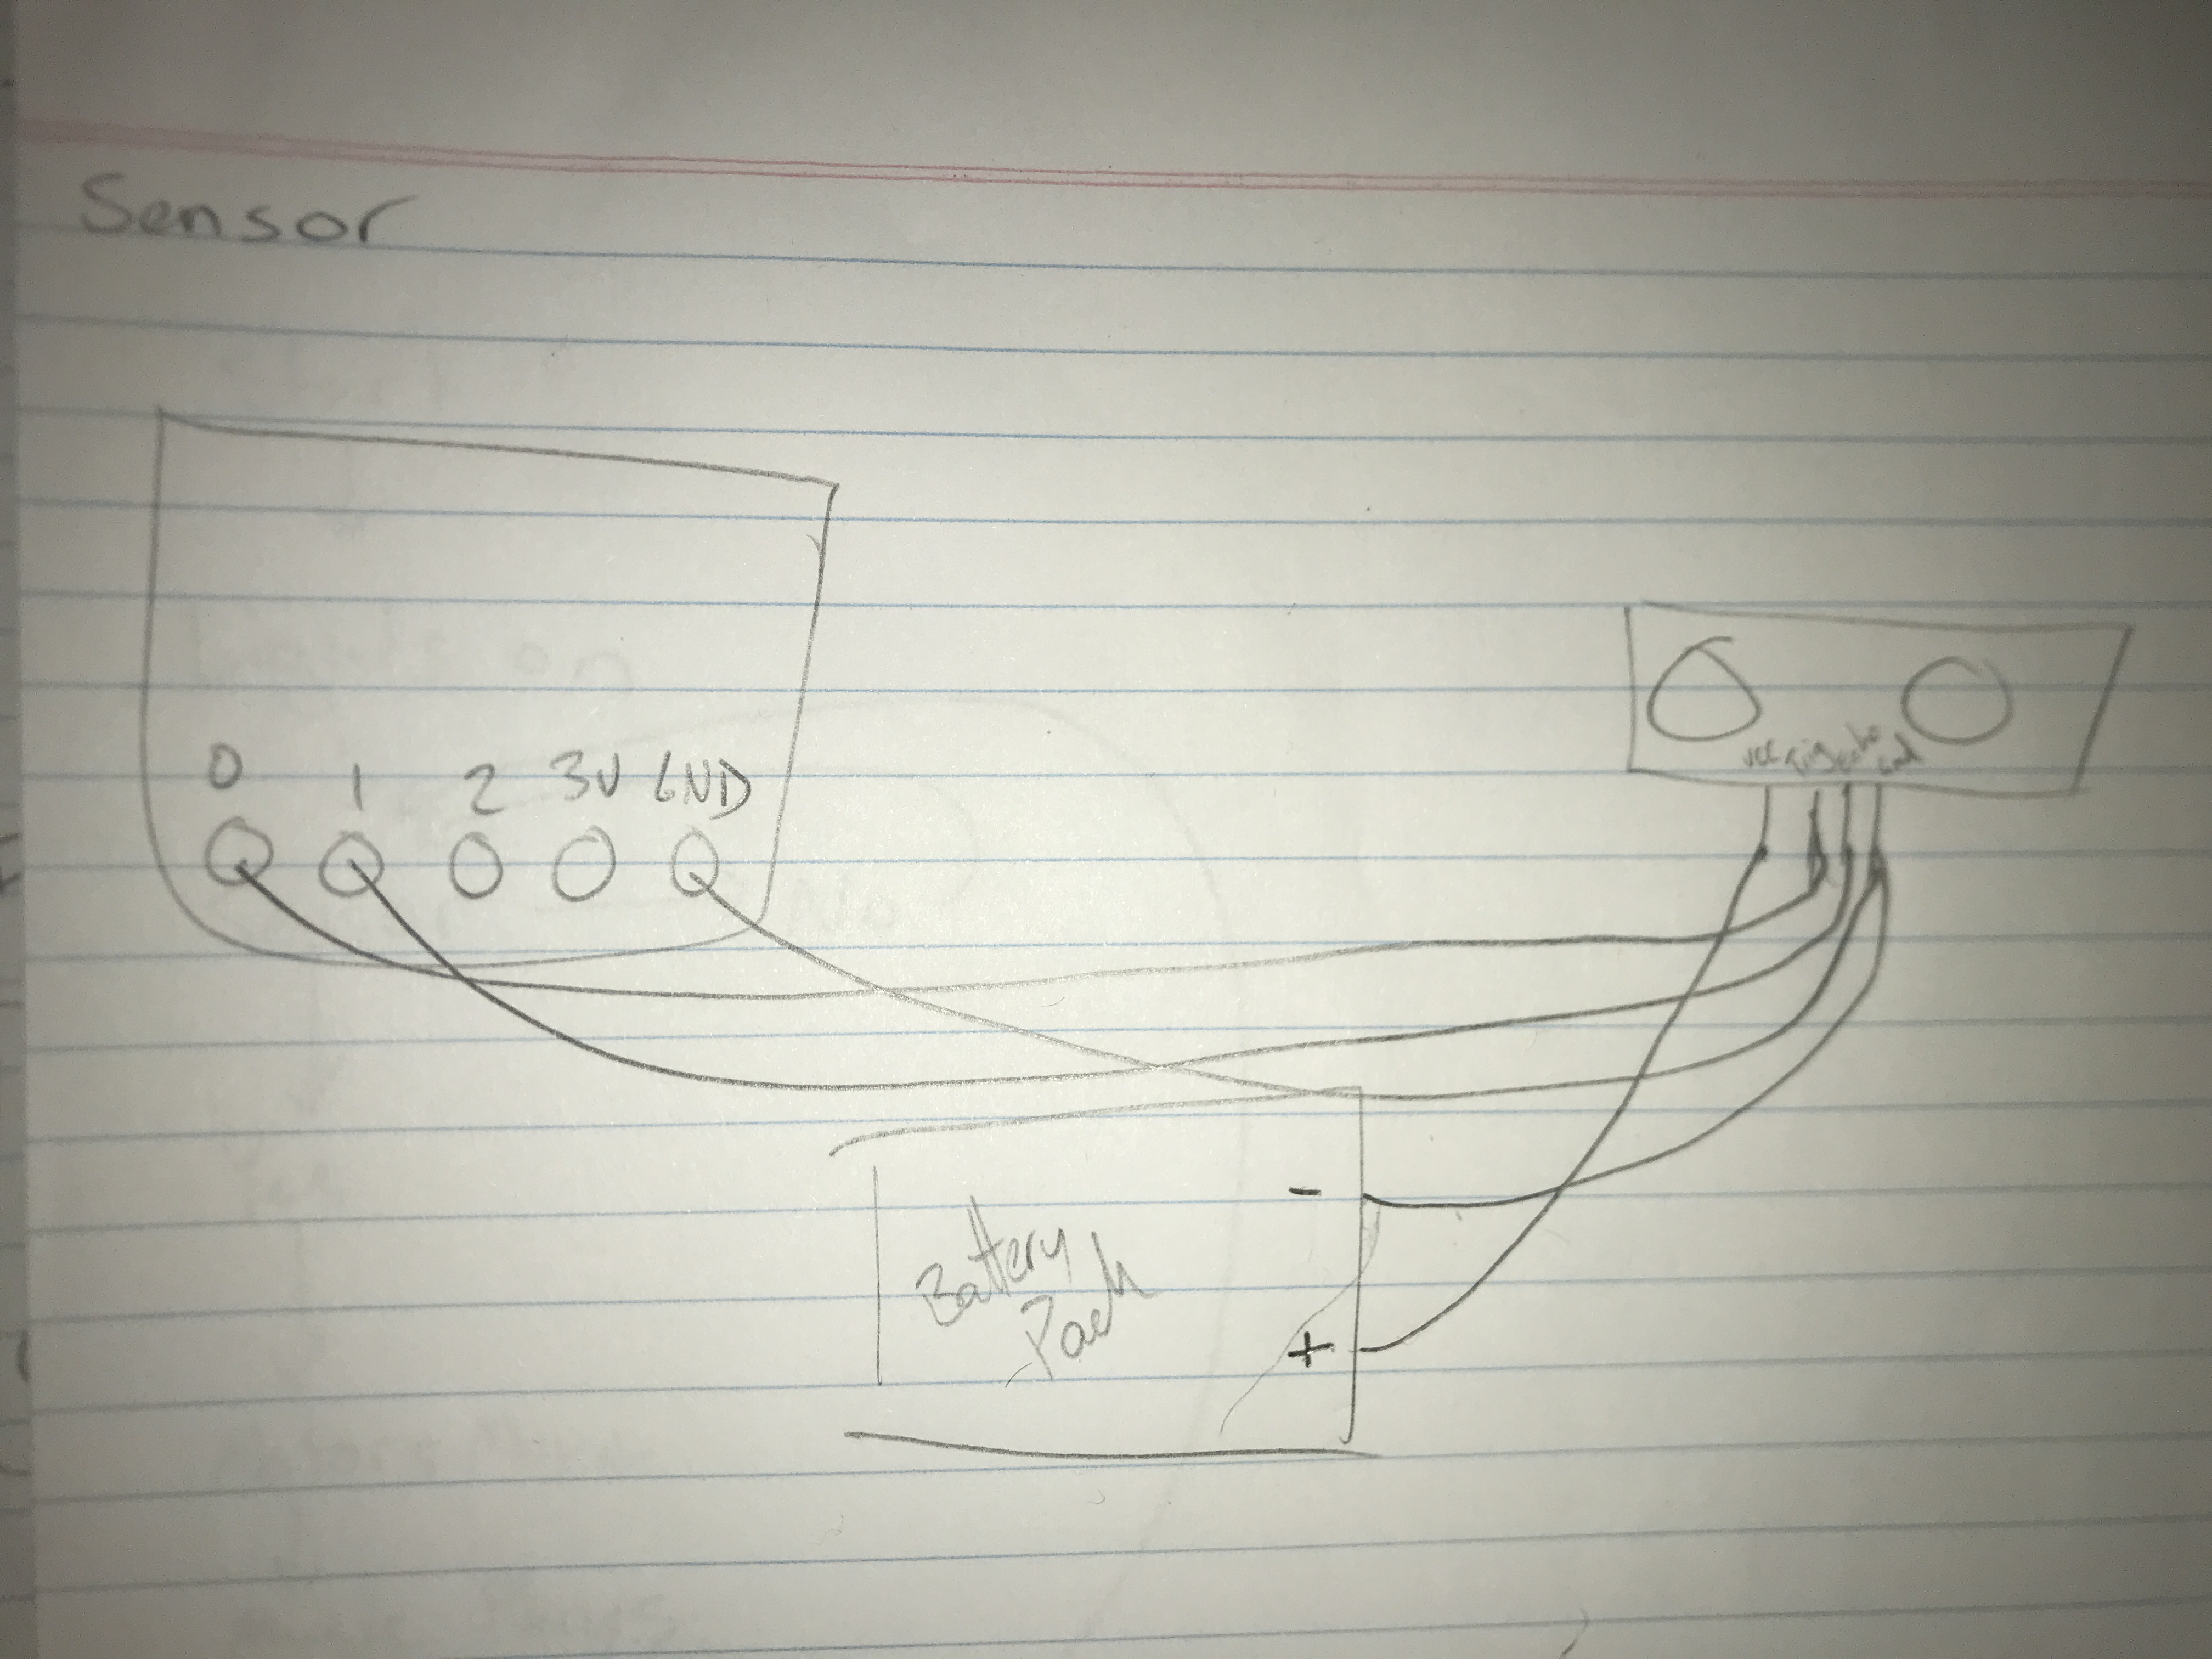 Sensor
0 1 2 3V GND
vcc Trig echo Gnd
-
Battery
Pack
+